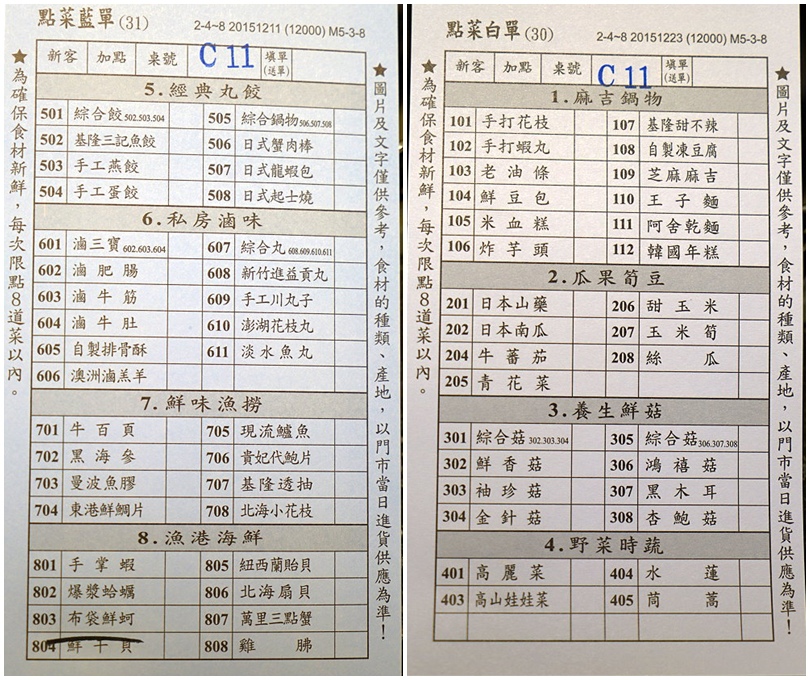 點菜藍單(31)
2-4~8 20151211 (12000) M5-3-8
新客 加點 桌號 C 11 填單(送單)
5.經典丸餃
501 綜合餃502.503.504 505 綜合鍋物506.507.508
502 基隆三記魚餃 506 日式蟹肉棒
503 手工燕餃 507 日式龍蝦包
504 手工蛋餃 508 日式起士燒
6.私房滷味
601 滷三寶602.603.604 607 綜合丸608.609.610.611
602 滷肥腸 608 新竹進益貢丸
603 滷牛筋 609 手工川丸子
604 滷牛肚 610 澎湖花枝丸
605 自製排骨酥 611 淡水魚丸
606 澳洲滷羔羊
7.鮮味漁撈
701 牛百頁 705 現流鱸魚
702 黑海參 706 貴妃代鮑片
703 曼波魚膠 707 基隆透抽
704 東港鮮鯛片 708 北海小花枝
8.漁港海鮮
801 手掌蝦 805 紐西蘭貽貝
802 爆漿蛤蠣 806 北海扇貝
803 布袋鮮蚵 807 萬里三點蟹
804 鮮干貝 808 雞胇
★為確保食材新鮮，每次限點8道菜以內。
★圖片及文字僅供參考，食材的種類、產地，以門市當日進貨供應為準！
點菜白單(30)
2-4~8 20151223 (12000) M5-3-8
新客 加點 桌號 C 11 填單(送單)
1.麻吉鍋物
101 手打花枝 107 基隆甜不辣
102 手打蝦丸 108 自製凍豆腐
103 老油條 109 芝麻麻吉
104 鮮豆包 110 王子麵
105 米血糕 111 阿舍乾麵
106 炸芋頭 112 韓國年糕
2.瓜果筍豆
201 日本山藥 206 甜玉米
202 日本南瓜 207 玉米筍
204 牛蕃茄 208 絲瓜
205 青花菜
3.養生鮮菇
301 綜合菇302.303.304 305 綜合菇306.307.308
302 鮮香菇 306 鴻禧菇
303 袖珍菇 307 黑木耳
304 金針菇 308 杏鮑菇
4.野菜時蔬
401 高麗菜 404 水蓮
403 高山娃娃菜 405 茼蒿
★為確保食材新鮮，每次限點8道菜以內。
★圖片及文字僅供參考，食材的種類、產地，以門市當日進貨供應為準！